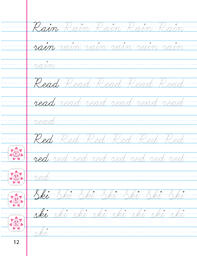 Rain Rain Rain Rain Rain
rain rain rain rain rain rain
rain
Read Read Read Read Read
read read read read read read
read
Red Red Red Red Red Red
red red red red red red red
red
Ski Ski Ski Ski Ski Ski Ski
ski ski ski ski ski ski ski
ski
12